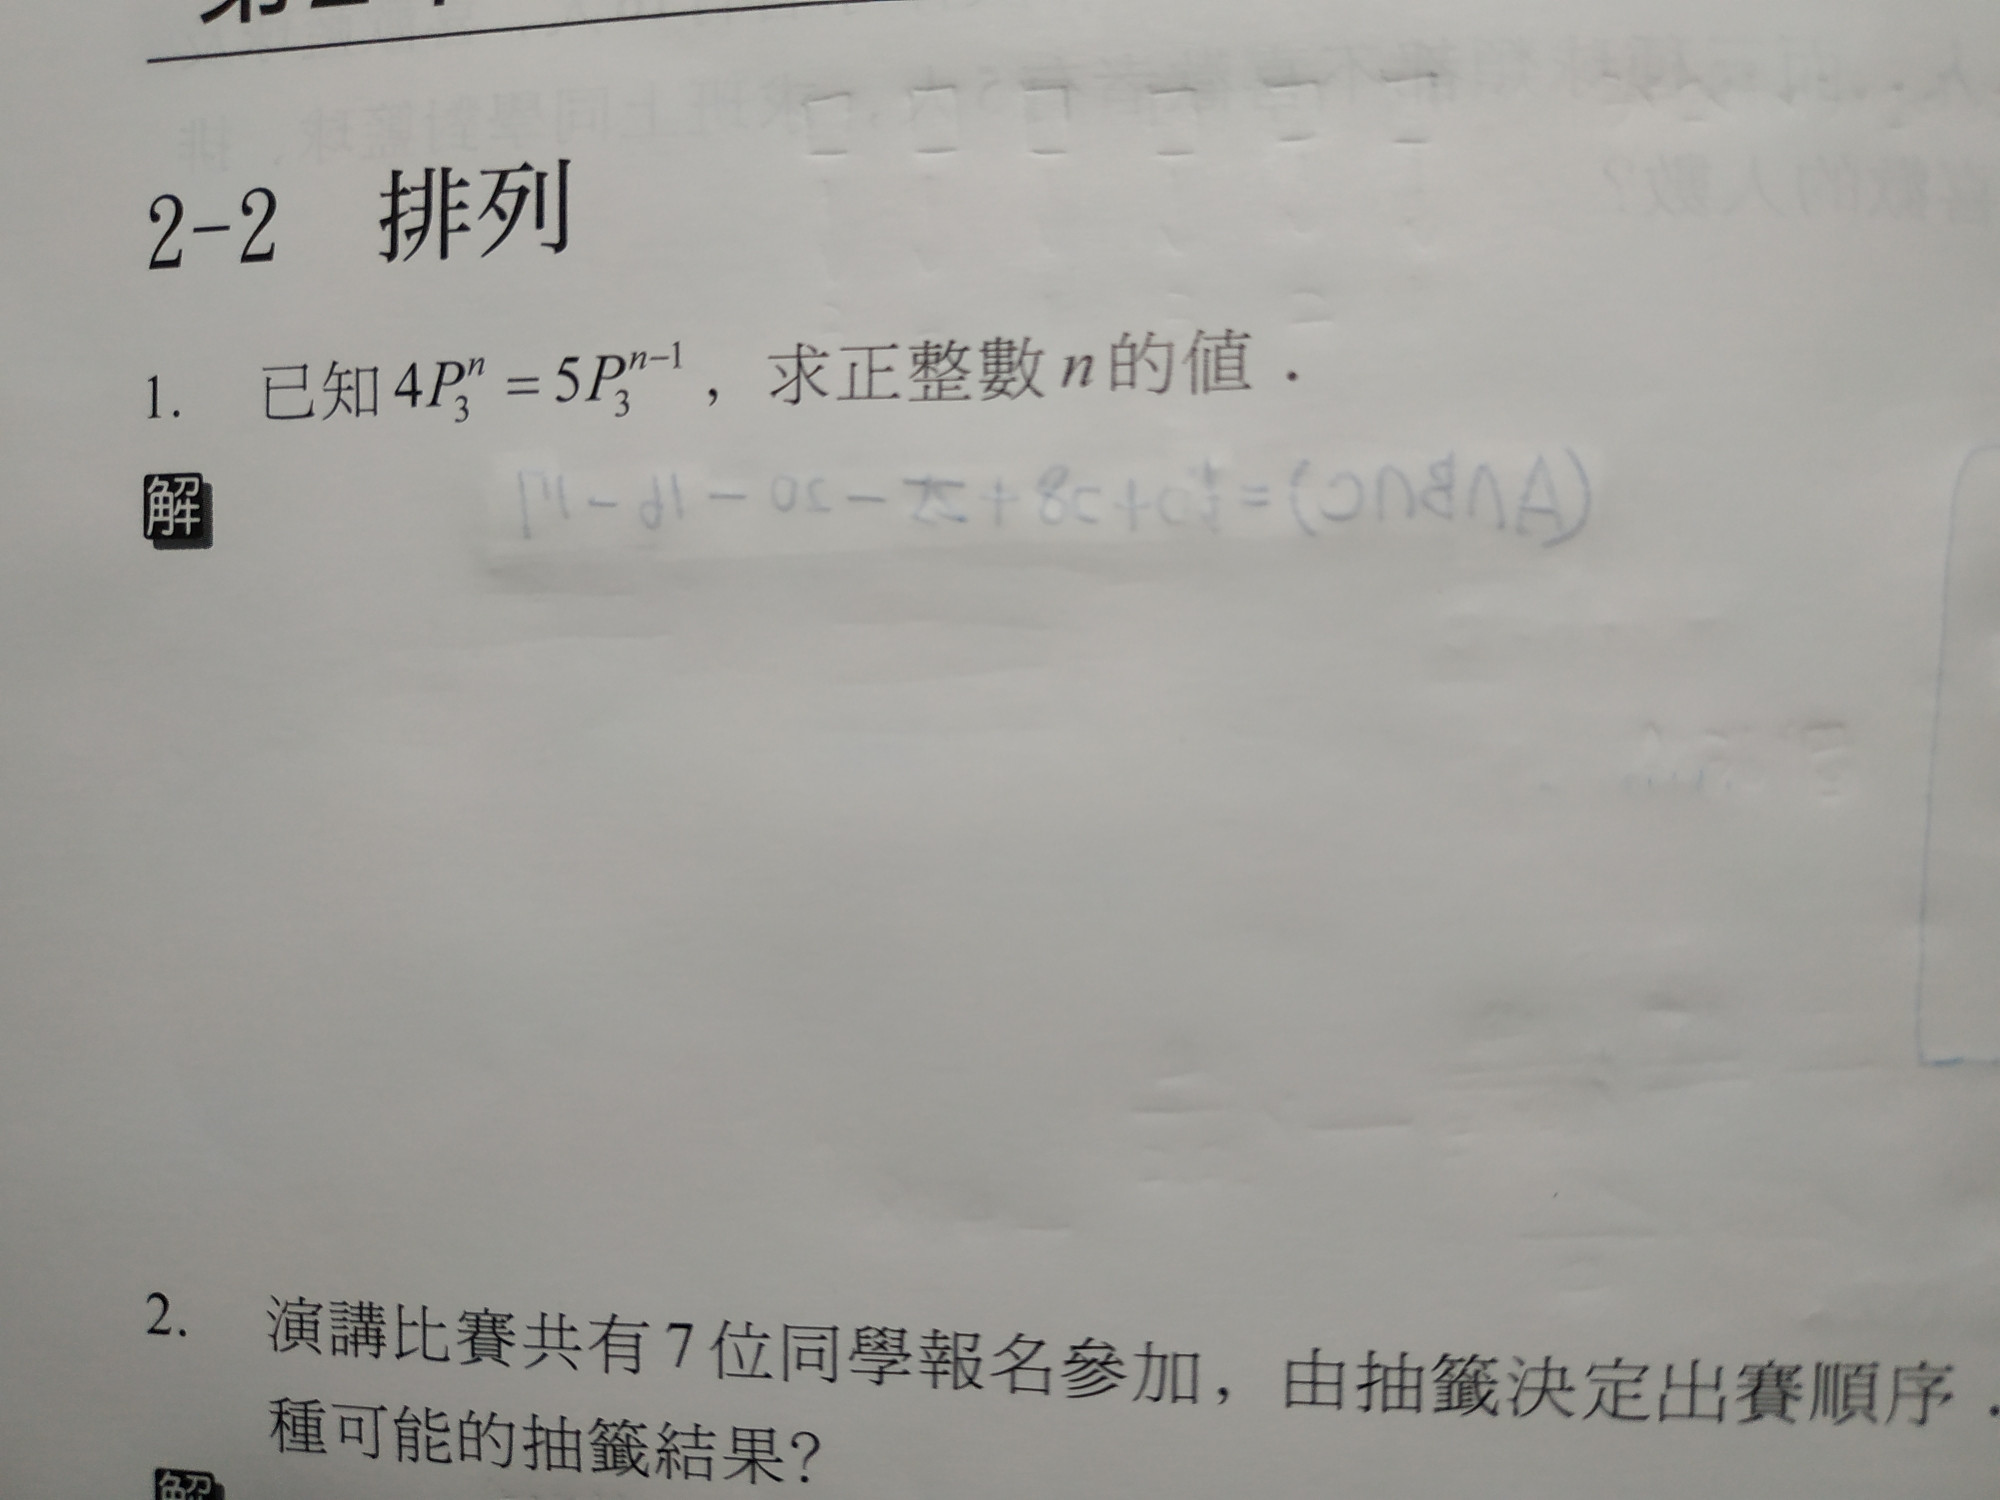 2-2 排列
1. 已知 4P₃ⁿ = 5P₃ⁿ⁻¹，求正整數 n 的值．
解
2. 演講比賽共有 7 位同學報名參加，由抽籤決定出賽順序．
種可能的抽籤結果？
解